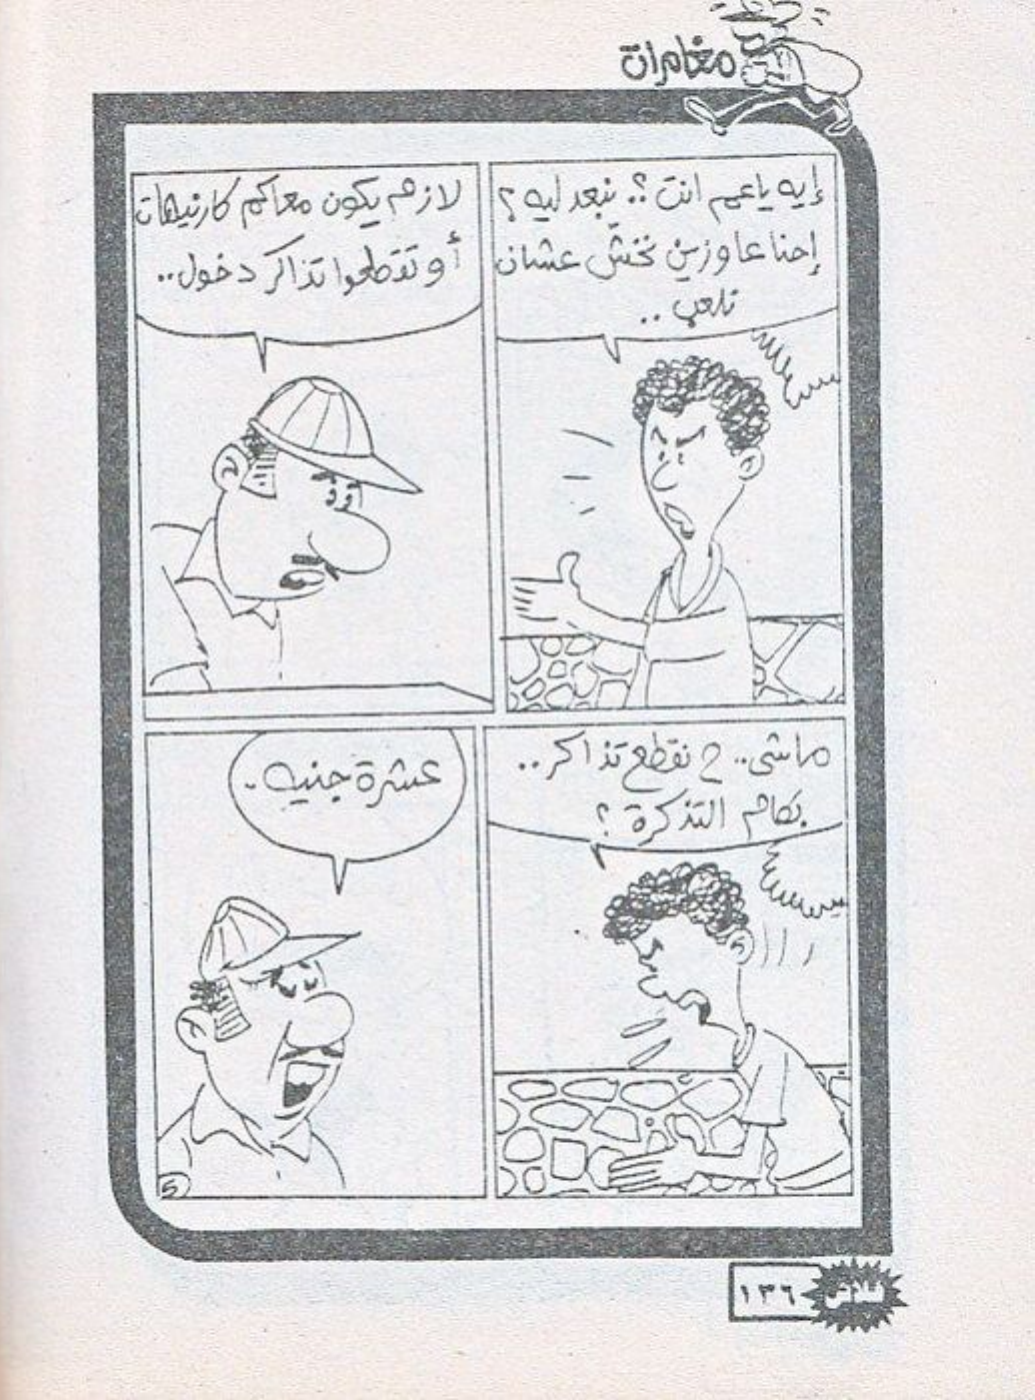 مغامرات
إيه ياعم انت؟. نبعد ليه؟
إحنا عاوزين نخش عشان
نلعب..
لازم يكون معاكم كارنيهات
أو تقطعوا تذاكر دخول..
ماشى.. ح نقطع تذاكر..
بكام التذكرة؟
عشرة جنيه..
5
فلاش
١٣٦